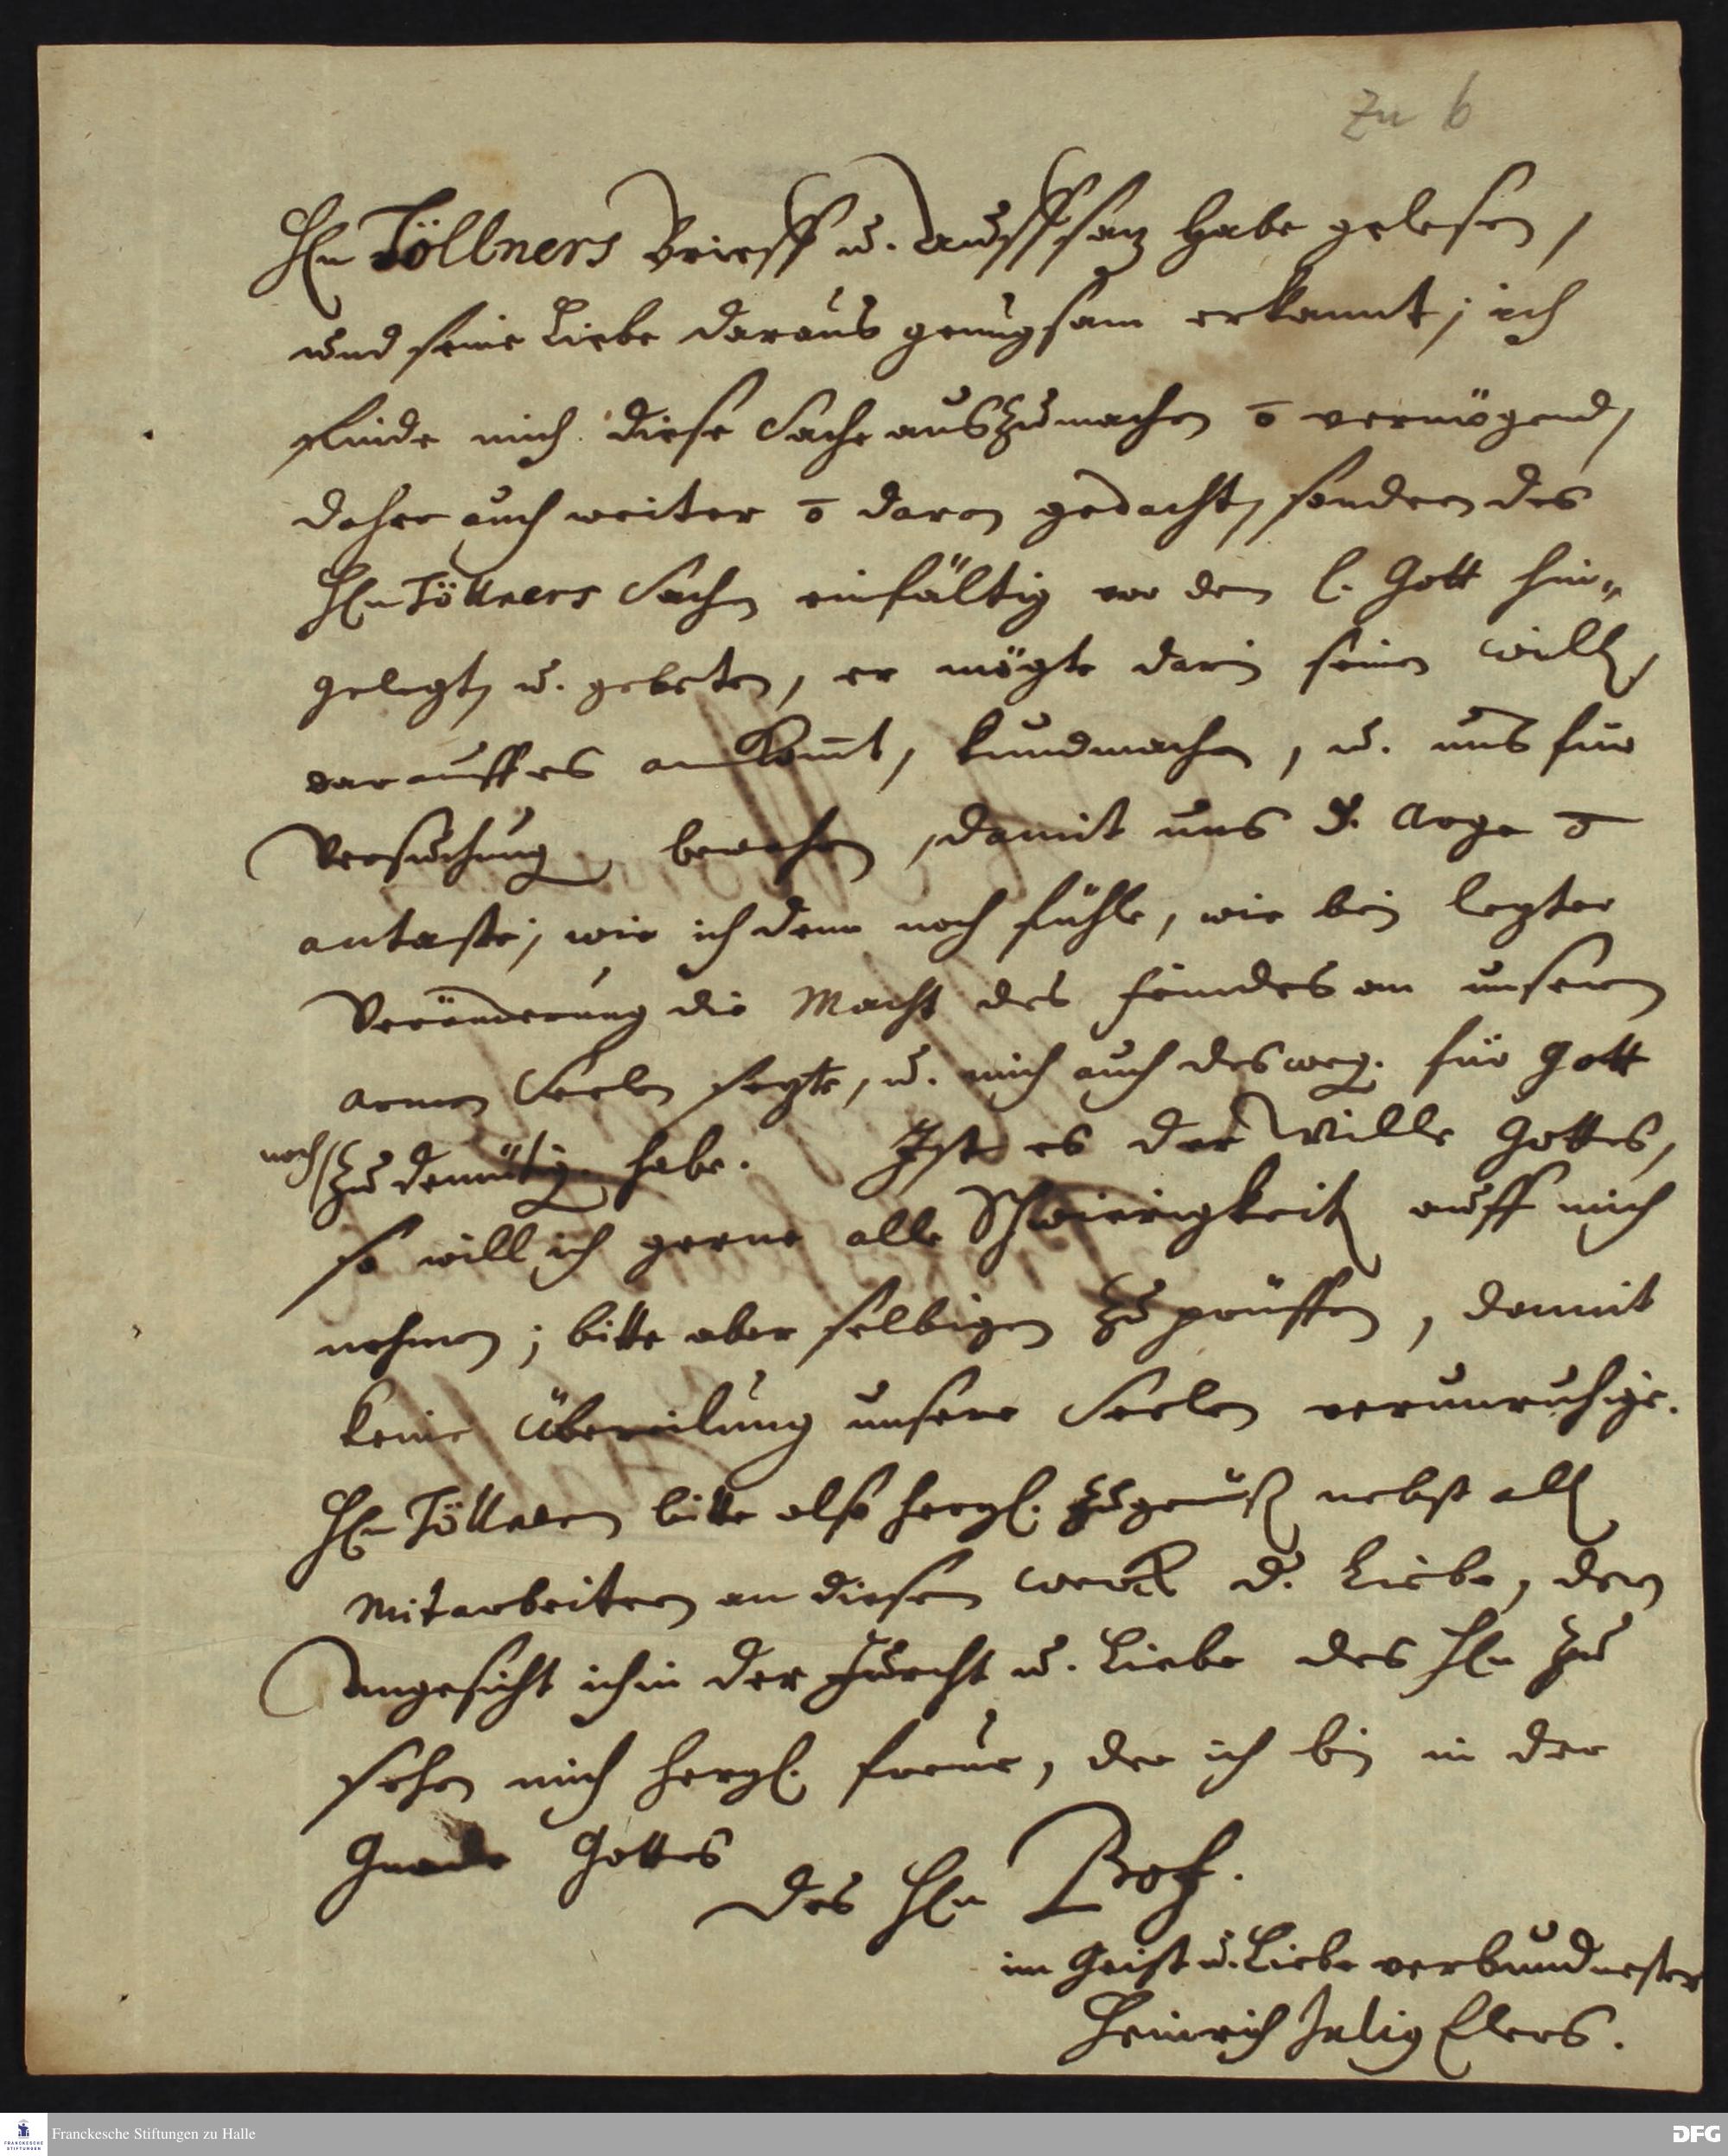 Zu 6
Hln Töllners Brieff u. Auffsaz habe gelesen,
und seine Liebe daraus genugsam erkannt; ich
finde mich diese Sache auszumachen ō vermögend,
daher auch weiter ō daran gedacht, sondern des
Hln Töllners Sachen einfältig vor den l. Gott hin-
gelegt, u. gebeten, er mögte darin seinen willen,
darauff es ankom̄t, kundmachen, u. uns für
Versuchung bewahren, damit uns d. Arge ō
antaste, wie ich denn noch fühle, wie bey lezter
Veränderung die Macht des feindes an unsern
armen Seelen sezte, u. mich auch desweg. für Gott
noch/zu demütig. habe. Ist es der Wille Gottes,
so will ich gerne alle Schwierigkeiten auff mich
nehmen; bitte aber selbigen zu prüffen, damit
keine Übereilung unsere Seelen verunruhige.
Hln Töllnern bitte also herzl. zu grüßen nebst allen
Mitarbeitern an diesen werck d. Liebe, deren
Angesicht ich in der Furcht u. Liebe des Hln zu
sehen mich herzl. freue, der ich bin in der
Gnade Gottes
des Hln Prof.
im Geist u. Liebe verbundnester
Heinrich Julius Elers.
Franckesche Stiftungen zu Halle
FRANCKESCHE STIFTUNGEN
DFG